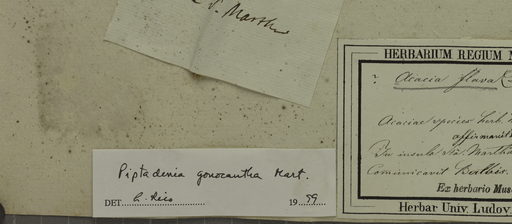 S. Martha
HERBARIUM REGIUM M
? Acacia flava
Acaciae species herb.
affirmavit
In insula Sta Martha
Communicavit Balbis.
Ex herbario Mus
Herbar Univ. Ludov
Piptadenia gonoacantha Mart.
DET. L. Rico 19 99